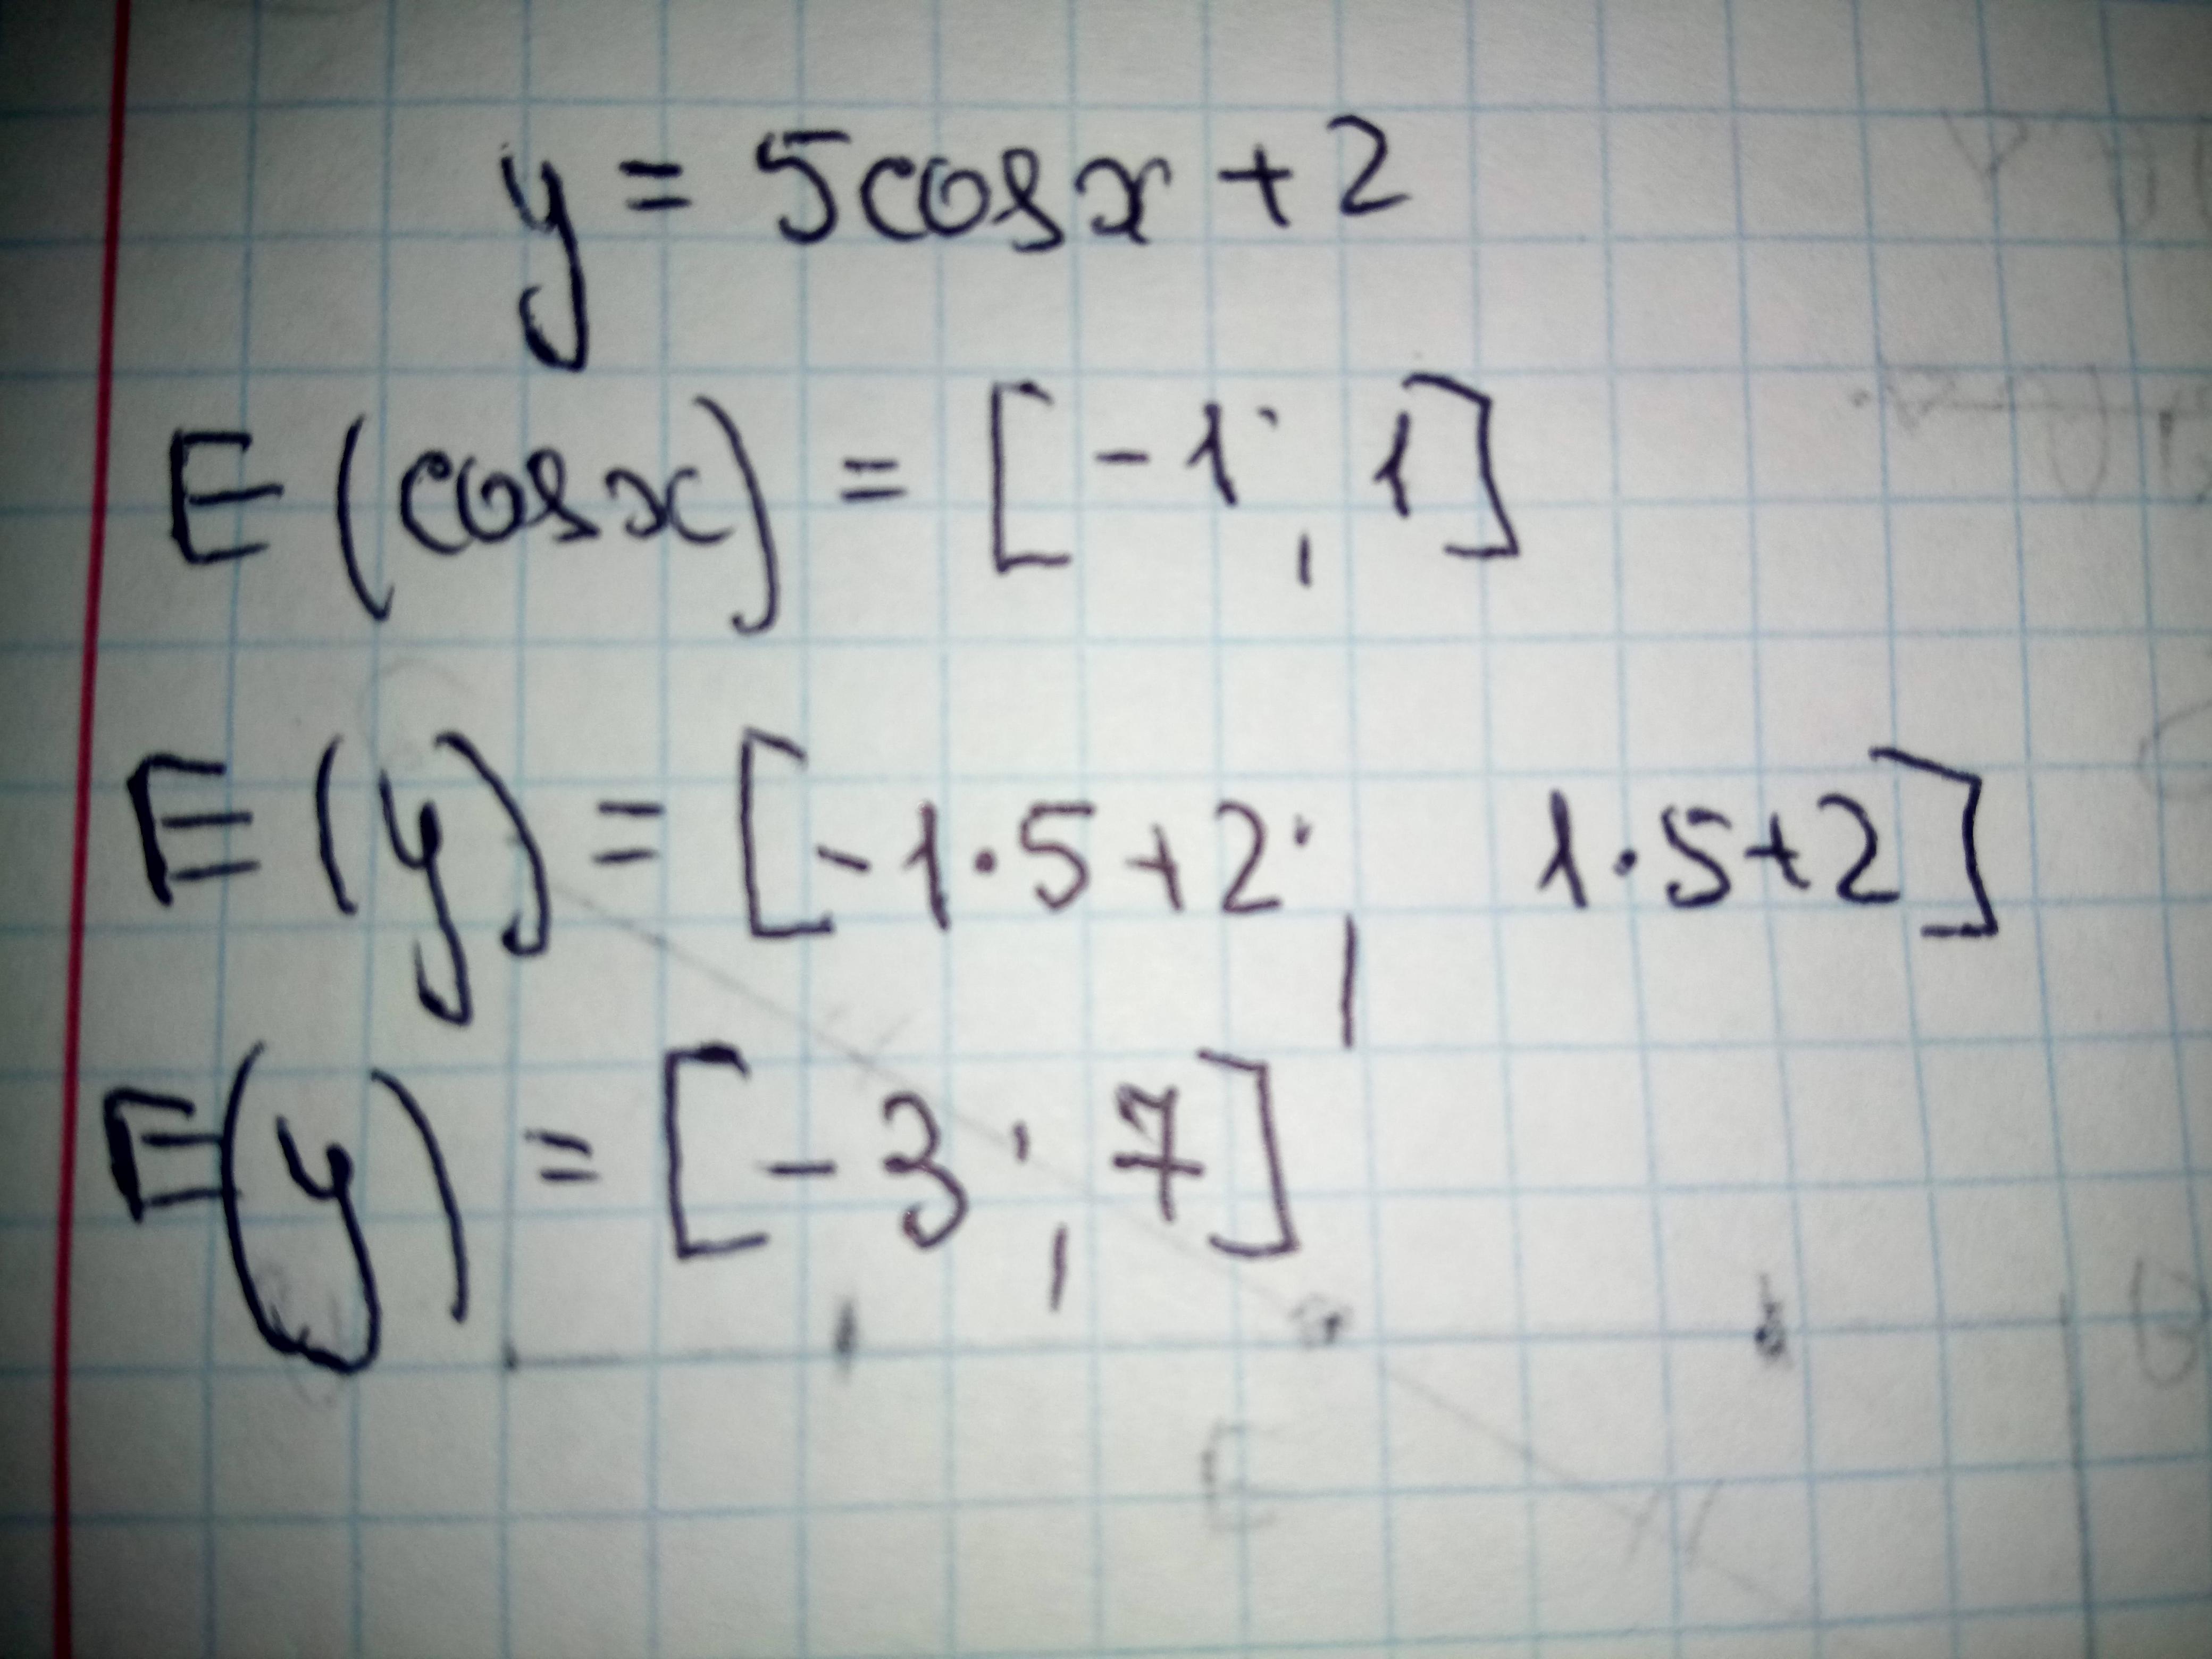 y = 5cosx + 2
E(cosx) = [-1; 1]
E(y) = [-1·5+2; 1·5+2]
E(y) = [-3; 7]